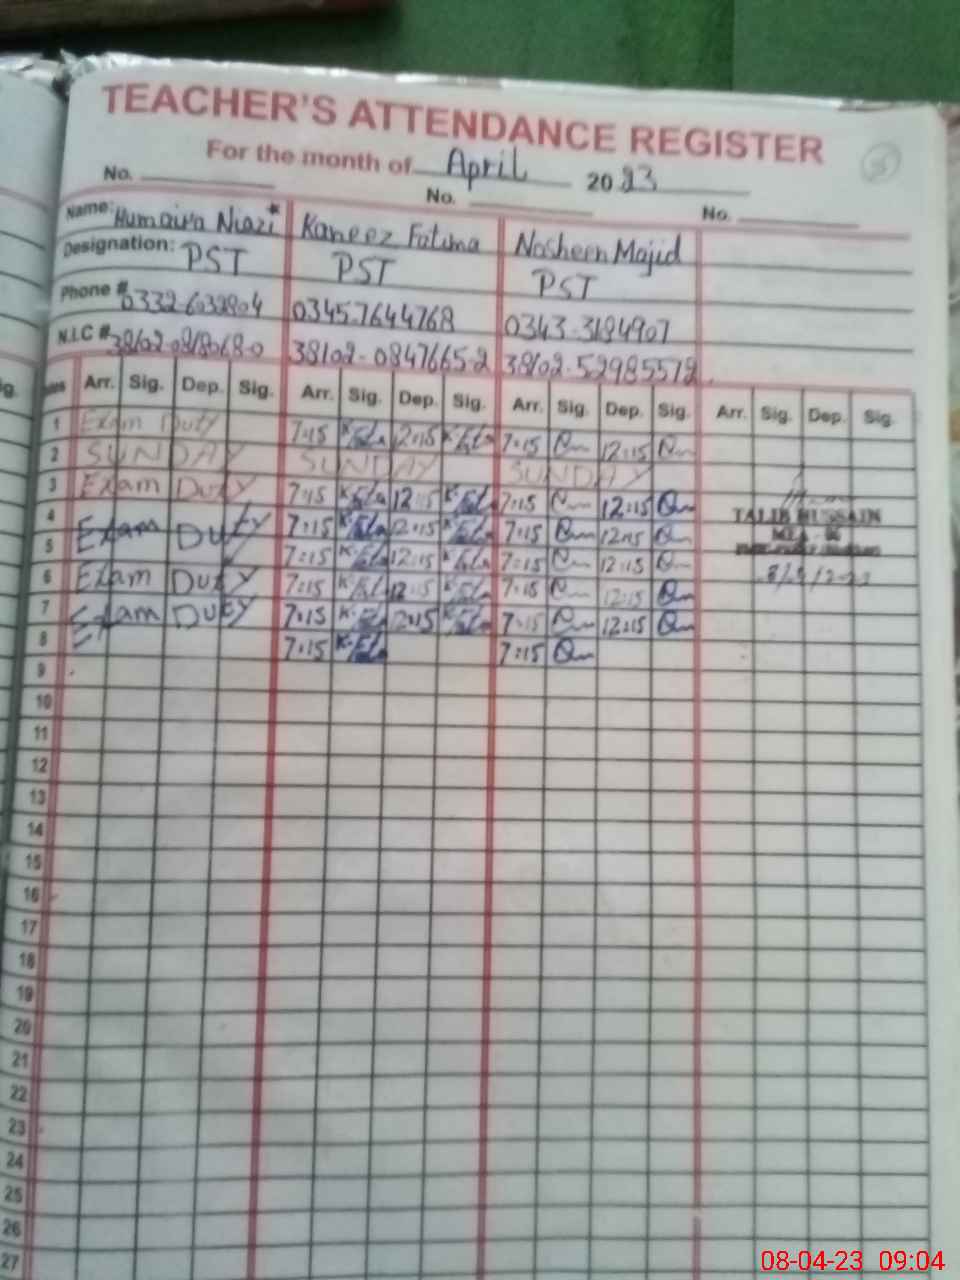 TEACHER'S ATTENDANCE REGISTER
For the month of April 2023
No. No. No.
Name: Humaira Niazi* Kaneez Fatima Nosheen Majid
Designation: PST PST PST
Phone # 0332-6032804 0345-7644768 0343-3184907
N.I.C # 38102-0847665-2 38102-52985572
Arr. Sig. Dep. Sig. Arr. Sig. Dep. Sig. Arr. Sig. Dep. Sig. Arr. Sig. Dep. Sig.
1 Exam Duty 7:15 12:15 7:15 12:15
2 SUNDAY SUNDAY SUNDAY
3 Exam Duty 7:15 12:15 7:15 12:15
4 Exam Duty 7:15 12:15 7:15 12:15
5 7:15 12:15 7:15 12:15
6 Exam Duty 7:15 12:15 7:15 12:15
7 Exam Duty 7:15 12:15 7:15 12:15
8 Ex 7:15 7:15
TALIB HUSSAIN
9
10
11
12
13
14
15
16
17
18
19
20
21
22
23
24
25
26
27
08-04-23 09:04